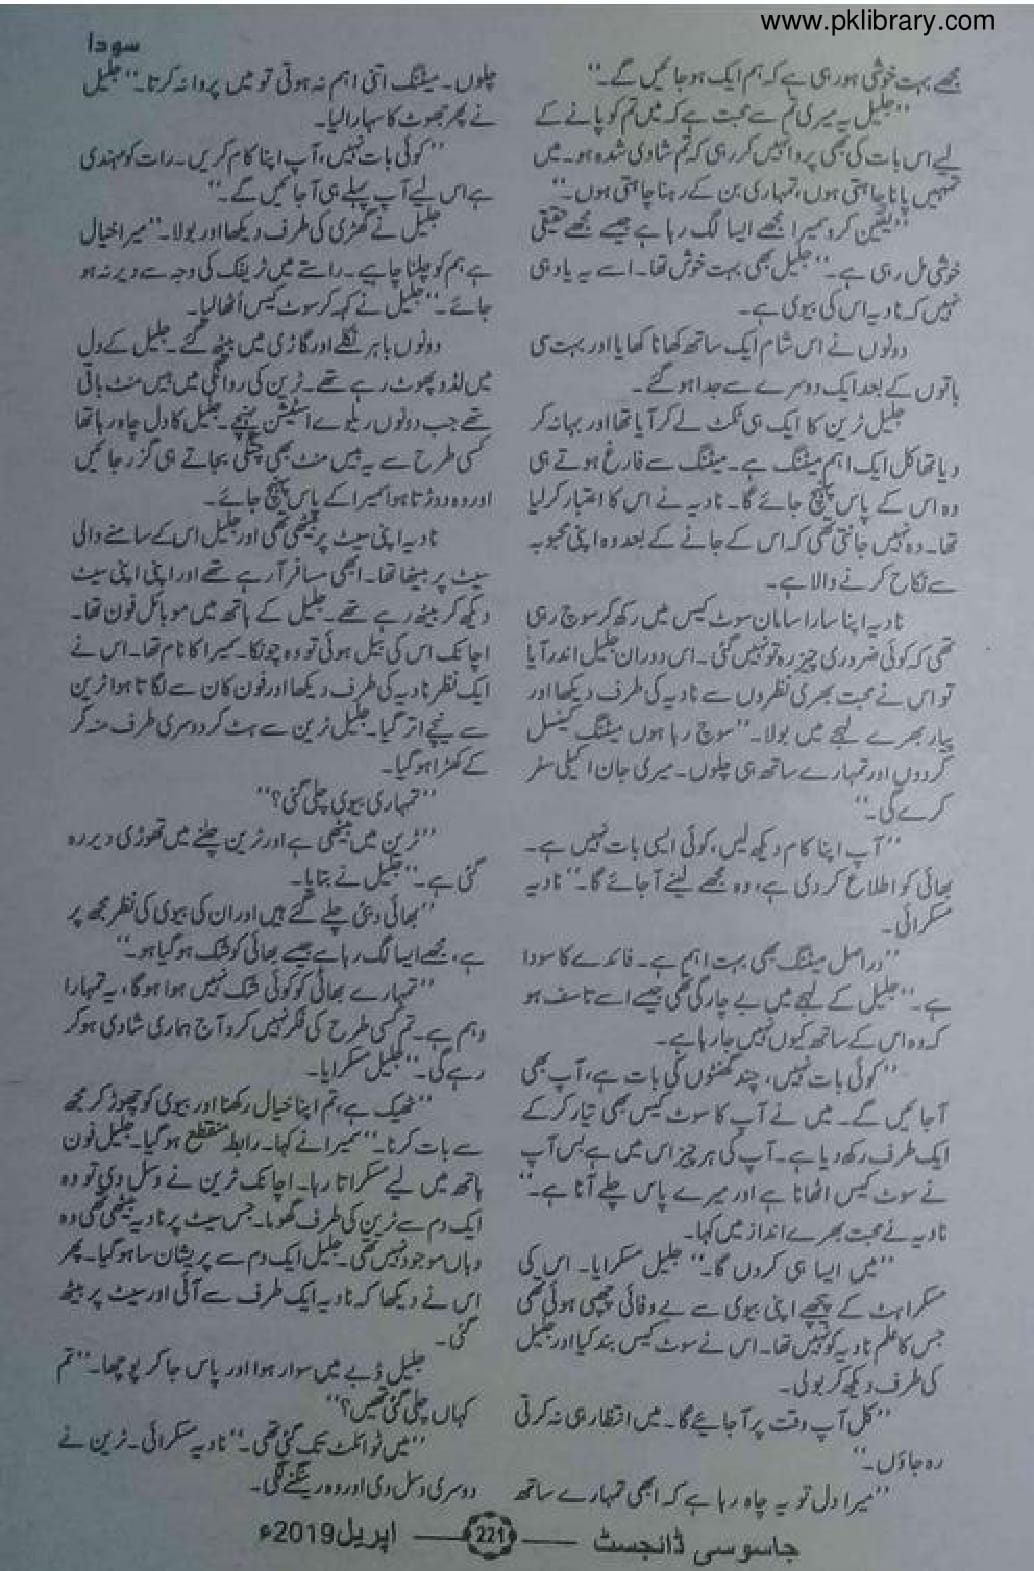 www.pklibrary.com
سودا
مجھے بہت خوشی ہو رہی ہے کہ ہم ایک ہو جائیں گے۔‘‘
’’جلیل یہ میری تم سے محبت ہے کہ میں تم کو پانے کے
لیے اس بات کی بھی پروا نہیں کر رہی کہ تم شادی شدہ ہو۔ میں
تمہیں پانا چاہتی ہوں، تمہاری بن کے رہنا چاہتی ہوں۔‘‘
’’یقین کرو سمیرا مجھے ایسا لگ رہا ہے جیسے مجھے حقیقی
خوشی مل رہی ہے۔‘‘ جلیل بھی بہت خوش تھا۔ اسے یہ یاد ہی
نہیں کہ نادیہ اس کی بیوی ہے۔
دونوں نے اس شام ایک ساتھ کھانا کھایا اور بہت سی
باتوں کے بعد ایک دوسرے سے جدا ہو گئے۔
جلیل ٹرین کا ایک ہی ٹکٹ لے کر آیا تھا اور بہانہ کر
دیا تھا کل ایک اہم میٹنگ ہے۔ میٹنگ سے فارغ ہوتے ہی
وہ اس کے پاس پہنچ جائے گا۔ نادیہ نے اس کا اعتبار کر لیا
تھا۔ وہ نہیں جانتی تھی کہ اس کے جانے کے بعد وہ اپنی محبوبہ
سے نکاح کرنے والا ہے۔
نادیہ اپنا سارا سامان سوٹ کیس میں رکھ کر سوچ رہی
تھی کہ کوئی ضروری چیز رہ تو نہیں گئی۔ اس دوران جلیل اندر آیا
تو اس نے محبت بھری نظروں سے نادیہ کی طرف دیکھا اور
پیار بھرے لہجے میں بولا۔ ’’سوچ رہا ہوں میٹنگ کینسل
کر دوں اور تمہارے ساتھ ہی چلوں۔ میری جان اکیلی سفر
کرے گی۔‘‘
’’آپ اپنا کام دیکھ لیں، کوئی ایسی بات نہیں ہے۔
بھائی کو اطلاع کر دی ہے، وہ مجھے لینے آ جائے گا۔‘‘ نادیہ
مسکرائی۔
’’دراصل میٹنگ بھی بہت اہم ہے۔ فائدے کا سودا
ہے۔‘‘ جلیل کے لہجے میں بے چارگی تھی جیسے اسے تاسف ہو
کہ وہ اس کے ساتھ کیوں نہیں جا رہا ہے۔
’’کوئی بات نہیں، چند گھنٹوں کی بات ہے، آپ بھی
آ جائیں گے۔ میں نے آپ کا سوٹ کیس بھی تیار کر کے
ایک طرف رکھ دیا ہے۔ آپ کی ہر چیز اس میں ہے بس آپ
نے سوٹ کیس اٹھانا ہے اور میرے پاس چلے آنا ہے۔‘‘
نادیہ نے محبت بھرے انداز میں کہا۔
’’میں ایسا ہی کروں گا۔‘‘ جلیل مسکرایا۔ اس کی
مسکراہٹ کے پیچھے اپنی بیوی سے بے وفائی چھپی ہوئی تھی
جس کا علم نادیہ کو نہیں تھا۔ اس نے سوٹ کیس بند کیا اور جلیل
کی طرف دیکھ کر بولی۔
’’کل آپ وقت پر آ جائیے گا۔ میں انتظار ہی نہ کرتی
رہ جاؤں۔‘‘
’’میرا دل تو یہ چاہ رہا ہے کہ ابھی تمہارے ساتھ
چلوں۔ میٹنگ اتنی اہم نہ ہوتی تو میں پروا نہ کرتا۔‘‘ جلیل
نے پھر جھوٹ کا سہارا لیا۔
’’کوئی بات نہیں، آپ اپنا کام کریں۔ رات کو مہندی
ہے اس لیے آپ پہلے ہی آ جائیں گے۔‘‘
جلیل نے گھڑی کی طرف دیکھا اور بولا۔ ’’میرا خیال
ہے ہم کو چلنا چاہیے۔ راستے میں ٹریفک کی وجہ سے دیر نہ ہو
جائے۔‘‘ جلیل نے کہہ کر سوٹ کیس اُٹھا لیا۔
دونوں باہر نکلے اور گاڑی میں بیٹھ گئے۔ جلیل کے دل
میں لڈو پھوٹ رہے تھے۔ ٹرین کی روانگی میں بیس منٹ باقی
تھے جب دونوں ریلوے اسٹیشن پہنچے۔ جلیل کا دل چاہ رہا تھا
کسی طرح سے یہ بیس منٹ بھی چٹکی بجاتے ہی گزر جائیں
اور وہ دوڑتا ہوا سمیرا کے پاس پہنچ جائے۔
نادیہ اپنی سیٹ پر بیٹھی تھی اور جلیل اس کے سامنے والی
سیٹ پر بیٹھا تھا۔ ابھی مسافر آ رہے تھے اور اپنی اپنی سیٹ
دیکھ کر بیٹھ رہے تھے۔ جلیل کے ہاتھ میں موبائل فون تھا۔
اچانک اس کی بیل ہوئی تو وہ چونکا۔ سمیرا کا نام تھا۔ اس نے
ایک نظر نادیہ کی طرف دیکھا اور فون کان سے لگاتا ہوا ٹرین
سے نیچے اتر گیا۔ جلیل ٹرین سے ہٹ کر دوسری طرف منہ کر
کے کھڑا ہو گیا۔
’’تمہاری بیوی چلی گئی؟‘‘
’’ٹرین میں بیٹھی ہے اور ٹرین چلنے میں تھوڑی دیر رہ
گئی ہے۔‘‘ جلیل نے بتایا۔
’’بھائی دبئی چلے گئے ہیں اور ان کی بیوی کی نظر مجھ پر
ہے، مجھے ایسا لگ رہا ہے جیسے بھائی کو شک ہو گیا ہو۔‘‘
’’تمہارے بھائی کو کوئی شک نہیں ہوا ہو گا، یہ تمہارا
وہم ہے۔ تم کسی طرح کی فکر نہیں کرو آج ہماری شادی ہو کر
رہے گی۔‘‘ جلیل مسکرایا۔
’’ٹھیک ہے، تم اپنا خیال رکھنا اور بیوی کو چھوڑ کر مجھ
سے بات کرنا۔‘‘ سمیرا نے کہا۔ رابطہ منقطع ہو گیا۔ جلیل فون
ہاتھ میں لیے مسکراتا رہا۔ اچانک ٹرین نے وسل دی تو وہ
ایک دم سے ٹرین کی طرف گھوما۔ جس سیٹ پر نادیہ بیٹھی تھی وہ
وہاں موجود نہیں تھی۔ جلیل ایک دم سے پریشان سا ہو گیا۔ پھر
اس نے دیکھا کہ نادیہ ایک طرف سے آئی اور سیٹ پر بیٹھ
گئی۔
جلیل ڈبے میں سوار ہوا اور پاس جا کر پوچھا۔ ’’تم
کہاں چلی گئی تھیں؟‘‘
’’میں ٹوائلٹ تک گئی تھی۔‘‘ نادیہ مسکرائی۔ ٹرین نے
دوسری وسل دی اور وہ رینگنے لگی۔
جاسوسی ڈائجسٹ 221 اپریل 2019ء